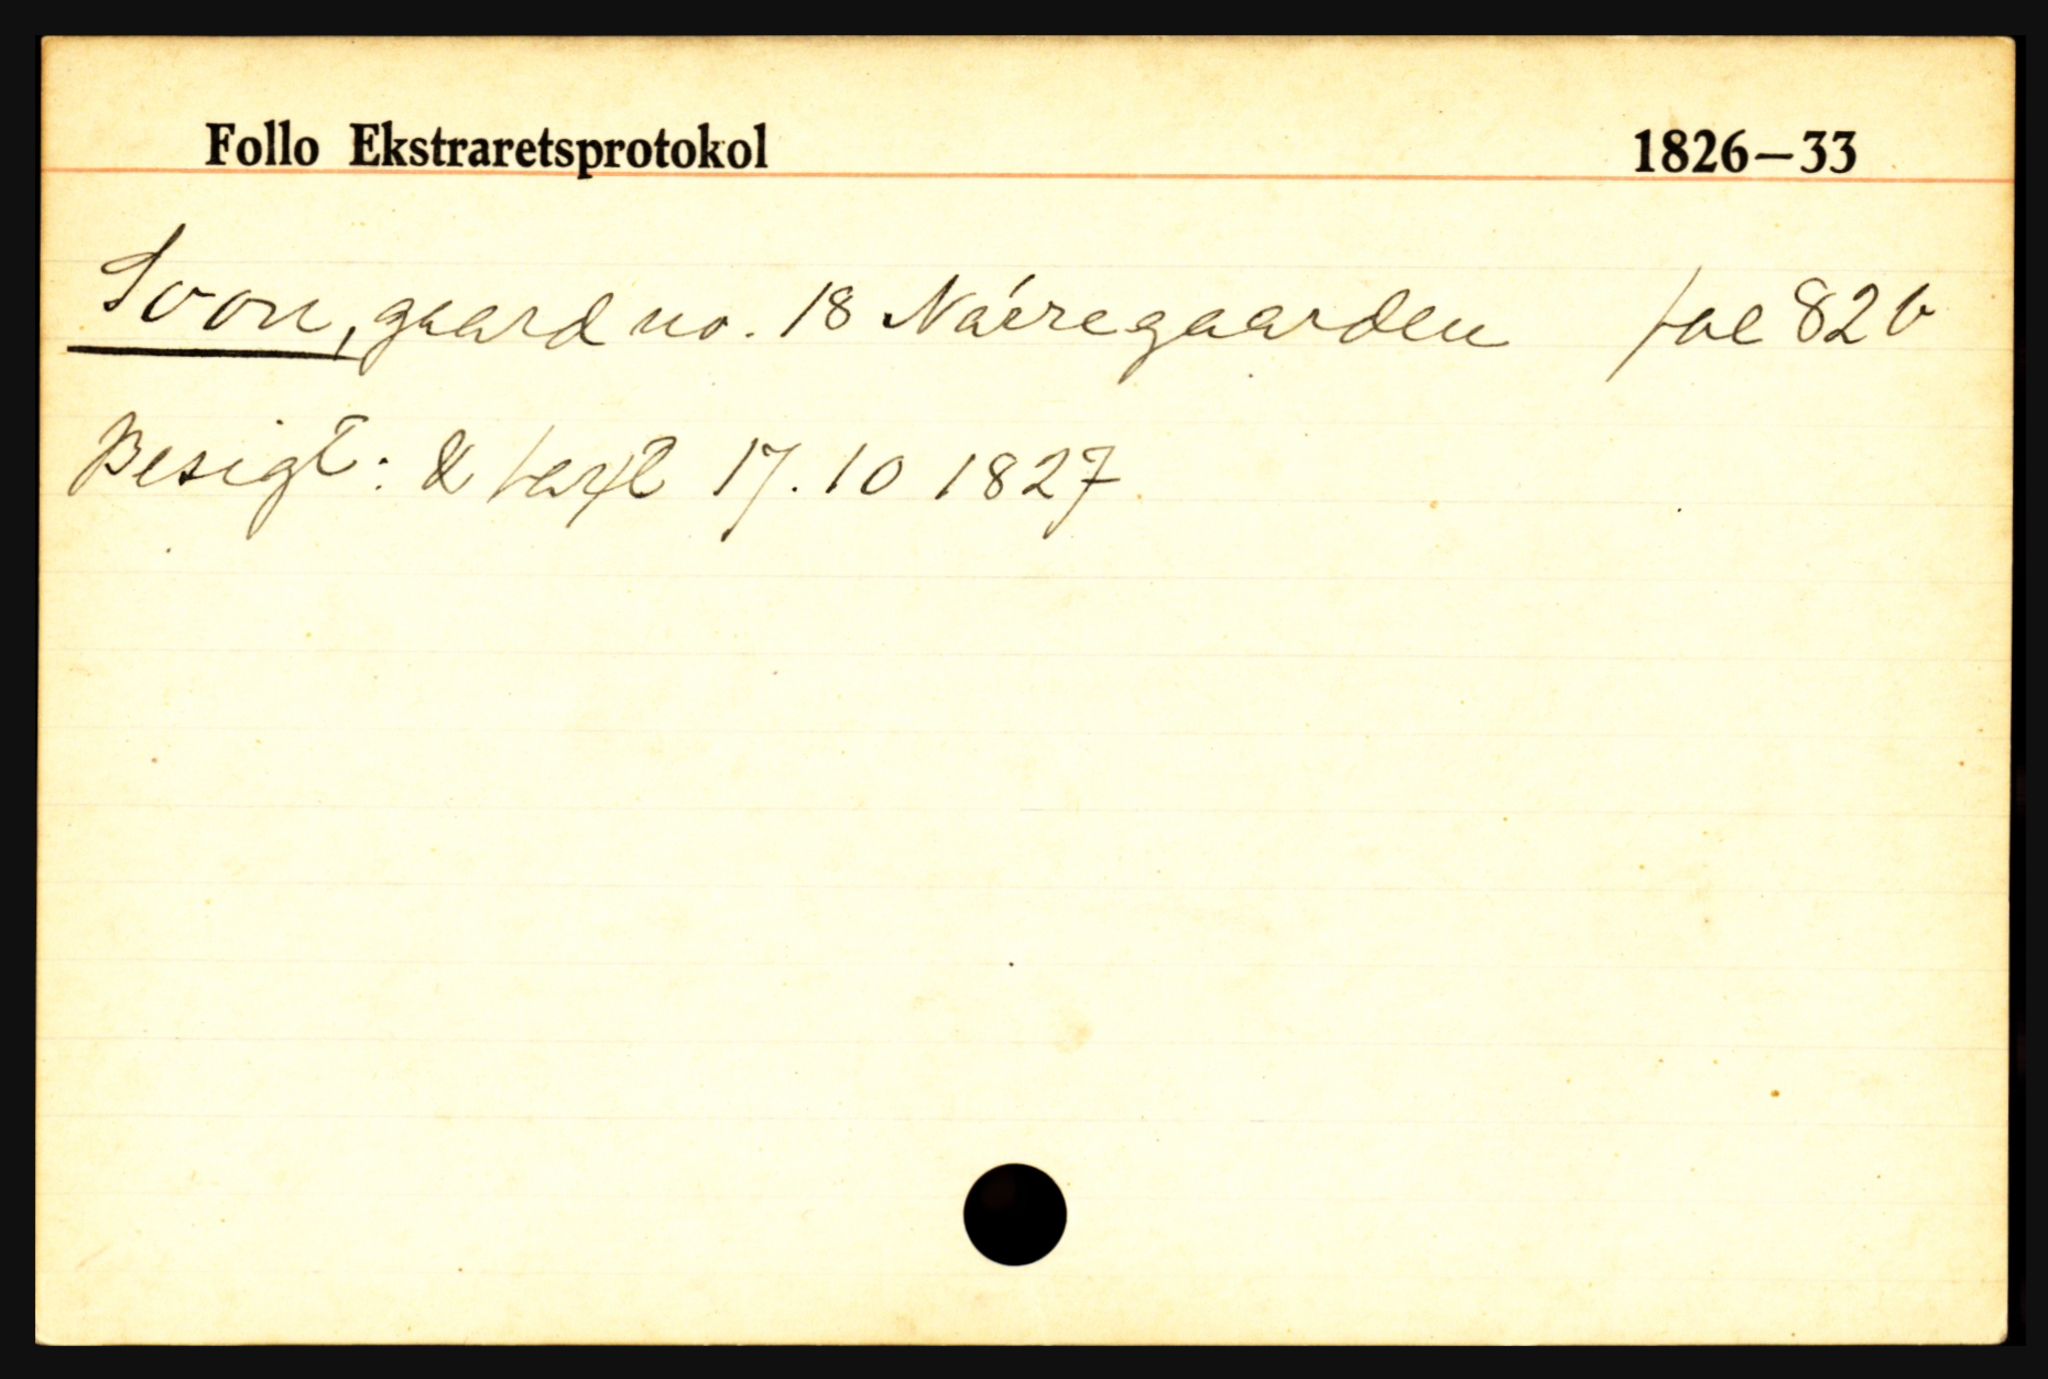 Follo Ekstraretsprotokol 1826–33
Soon, gaard no. 18 Nórregaarden fol 82 b
Besigt: & taxt 17. 10 1827